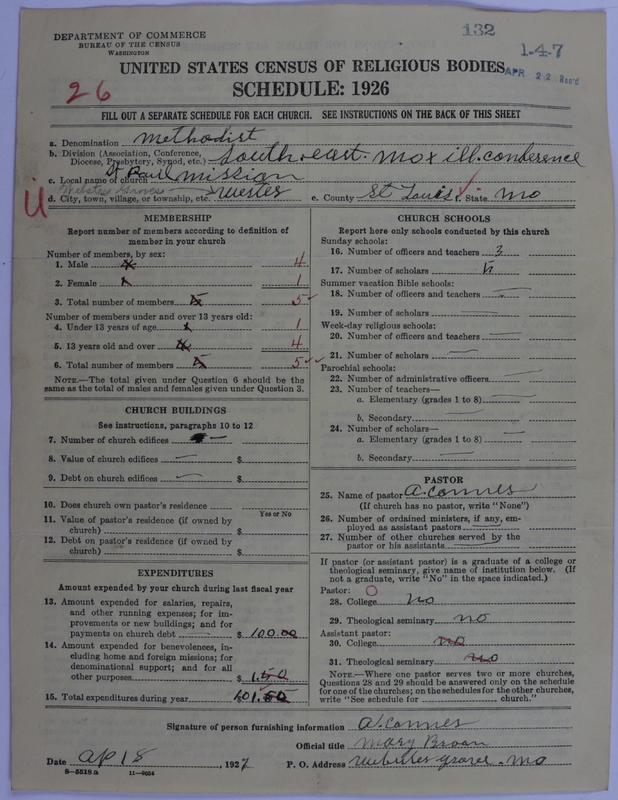 132
DEPARTMENT OF COMMERCE
BUREAU OF THE CENSUS
WASHINGTON
1-4-7
APR 22 Rec'd
UNITED STATES CENSUS OF RELIGIOUS BODIES
SCHEDULE: 1926
26
FILL OUT A SEPARATE SCHEDULE FOR EACH CHURCH. SEE INSTRUCTIONS ON THE BACK OF THIS SHEET
a. Denomination Methodist
b. Division (Association, Conference, Diocese, Presbytery, Synod, etc.) South east. Mo & ill. conference
c. Local name of church St Paul mission
Webster Groves
d. City, town, village, or township, etc. e. County St Louis f. State Mo
MEMBERSHIP
Report number of members according to definition of
member in your church
Number of members, by sex:
1. Male 4 4
2. Female 1 1
3. Total number of members 5 5
Number of members under and over 13 years old:
4. Under 13 years of age 1 1
5. 13 years old and over 4 4
6. Total number of members 5 5
NOTE.—The total given under Question 6 should be the
same as the total of males and females given under Question 3.
CHURCH BUILDINGS
See instructions, paragraphs 10 to 12
7. Number of church edifices
8. Value of church edifices $
9. Debt on church edifices $
10. Does church own pastor's residence
Yes or No
11. Value of pastor's residence (if owned by
church) $
12. Debt on pastor's residence (if owned by
church) $
EXPENDITURES
Amount expended by your church during last fiscal year
13. Amount expended for salaries, repairs,
and other running expenses; for im-
provements or new buildings; and for
payments on church debt $ 100.00
14. Amount expended for benevolences, in-
cluding home and foreign missions; for
denominational support; and for all
other purposes $ 1.50
15. Total expenditures during year 101.50
CHURCH SCHOOLS
Report here only schools conducted by this church
Sunday schools:
16. Number of officers and teachers 3
17. Number of scholars
Summer vacation Bible schools:
18. Number of officers and teachers
19. Number of scholars
Week-day religious schools:
20. Number of officers and teachers
21. Number of scholars
Parochial schools:
22. Number of administrative officers
23. Number of teachers—
a. Elementary (grades 1 to 8)
b. Secondary
24. Number of scholars—
a. Elementary (grades 1 to 8)
b. Secondary
PASTOR
25. Name of pastor A. Connes
(If church has no pastor, write "None")
26. Number of ordained ministers, if any, em-
ployed as assistant pastors
27. Number of other churches served by the
pastor or his assistants
If pastor (or assistant pastor) is a graduate of a college or
theological seminary, give name of institution below. (If
not a graduate, write "No" in the space indicated.)
Pastor:
28. College No
29. Theological seminary no
Assistant pastor:
30. College no
31. Theological seminary no
NOTE.—Where one pastor serves two or more churches,
Questions 28 and 29 should be answered only on the schedule
for one of the churches; on the schedules for the other churches,
write "See schedule for church."
Signature of person furnishing information A. Connes
Official title Mary Broan
Date Ap 18, 1927 P. O. Address Webster Groves. Mo
8—5518 a 11—9654